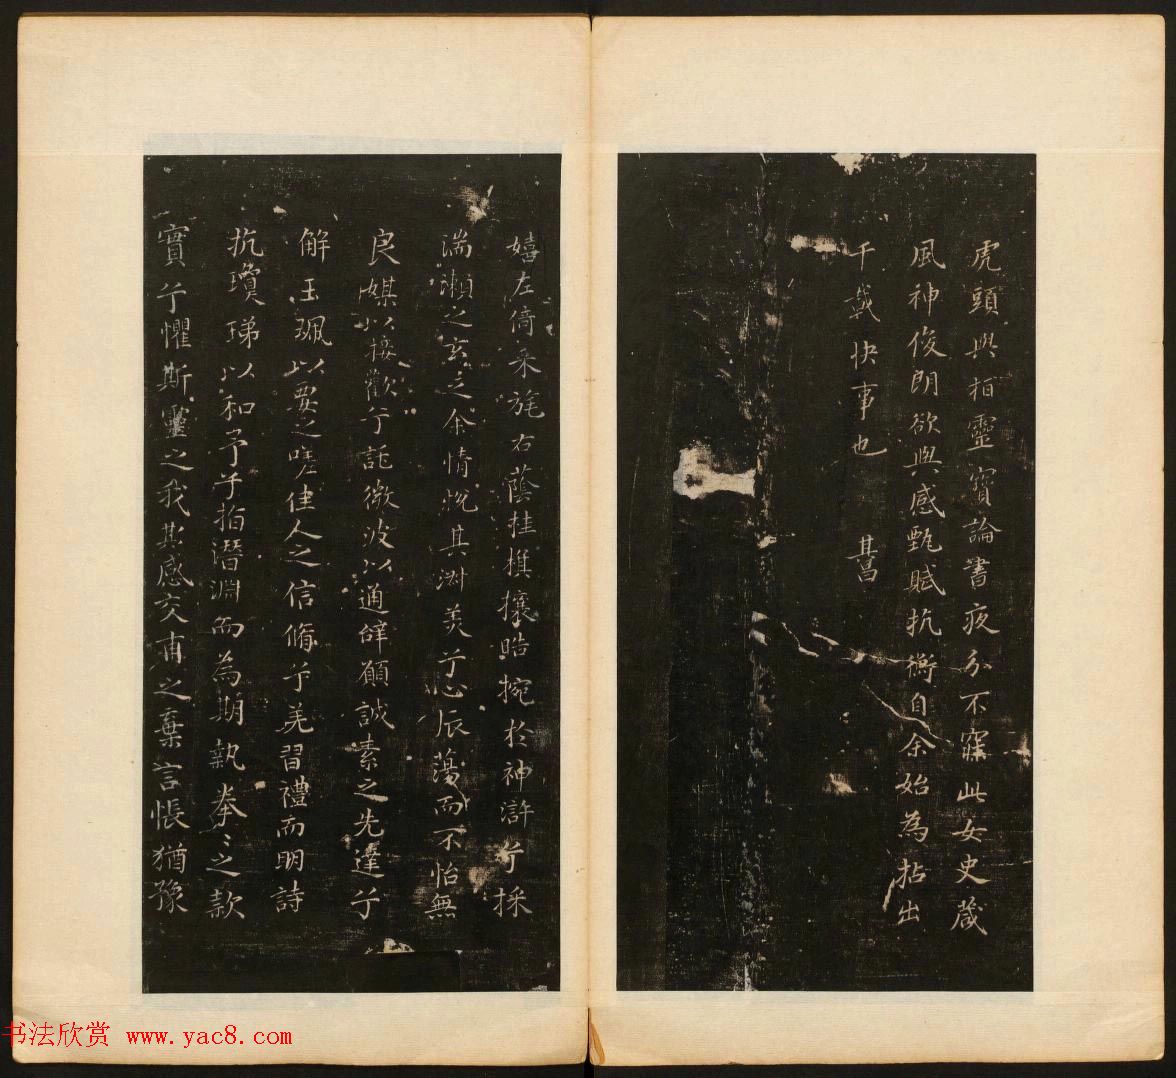 虎頭與桓靈寶論書夜分不寐此女史葴
風神俊朗欲與感甄賦抗衡自余始為拈出
千載快事也　其昌
嬉左倚采旄右蔭桂旗攘皓捥於神滸兮採
湍瀬之玄芝余情悦其淑美兮心辰蕩而不怡無
良媒以接歡兮託微波以通辭願誠素之先達兮
解玉珮以要之嗟佳人之信脩兮羌習禮而明詩
抗瓊珶以和予兮指潛淵而為期執拳之款
實兮懼斯靈之我欺感交甫之棄言悵猶豫
书法欣赏 www.yac8.com